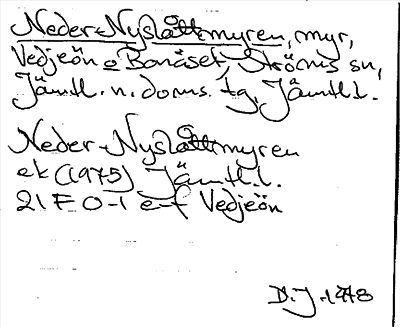 Neder-Nyslåttmyren, myr,
Vedjeön o Bonäset, Ströms sn,
Jämtl. n. doms. tg, Jämtl.l.
Neder-Nyslåttmyren
ek (1975) Jämtl.l.
21 F 0-1 e-f Vedjeön
D.J. 1978